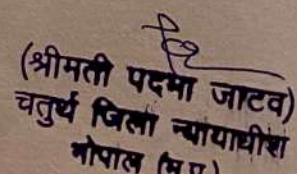 (श्रीमती पदमा जाटव)
चतुर्थ जिला न्यायाधीश
भोपाल (म.प्र.)